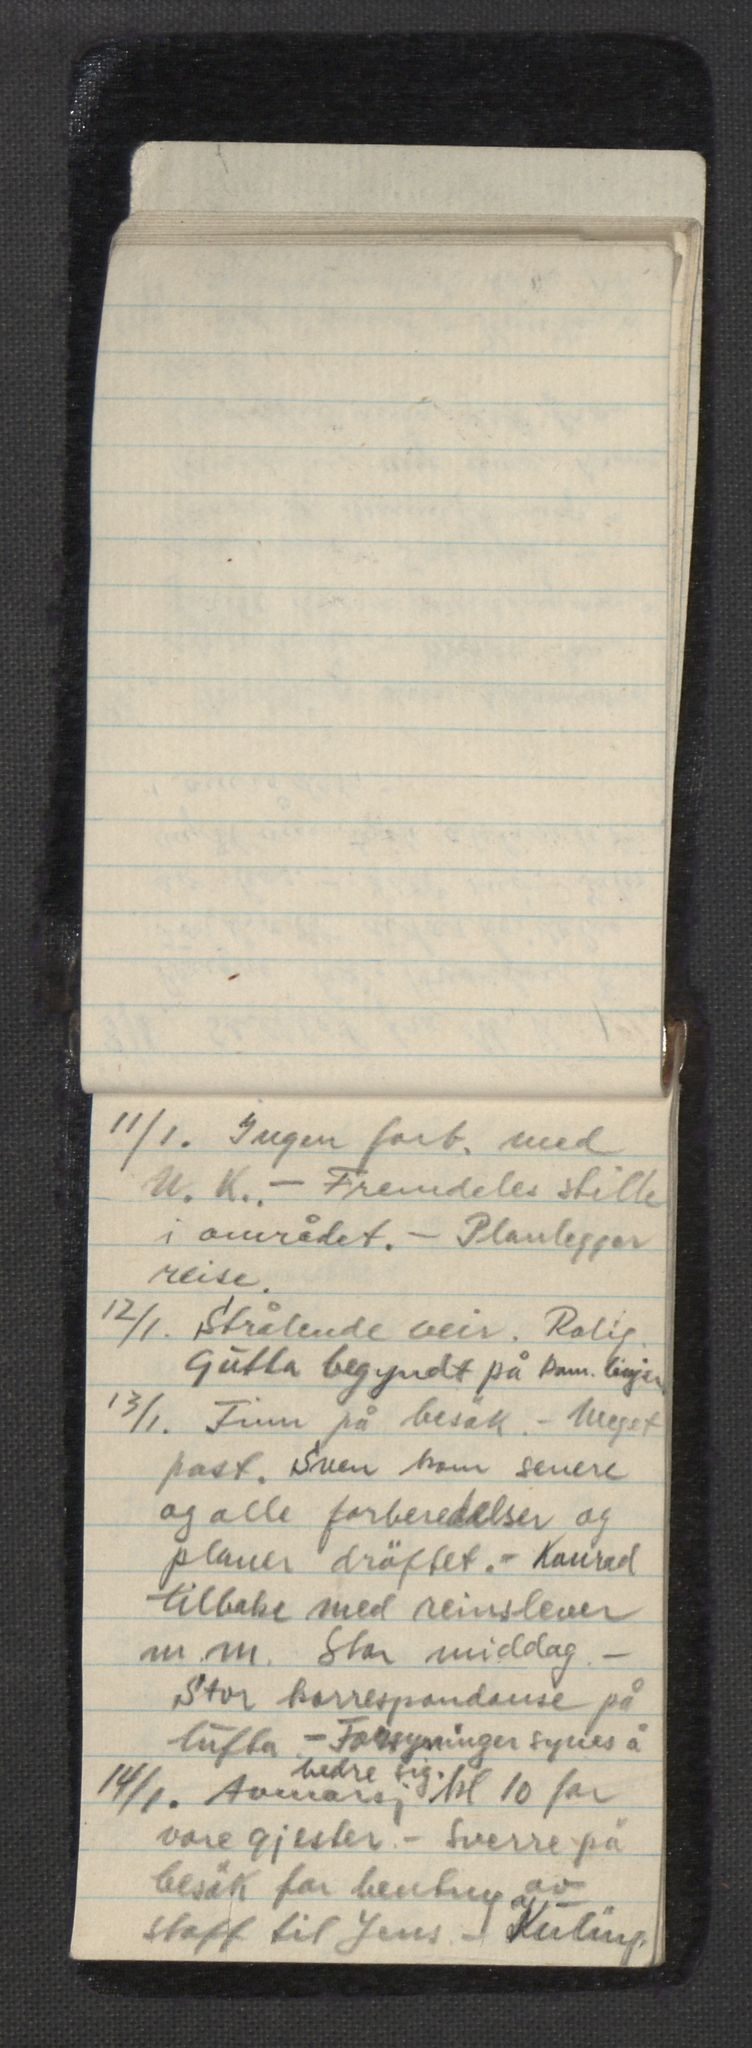 11/1. Ingen forb. med
U. K. - Fremdeles stille
i området. - Planlegger
reise.
12/1. Strålende veir. Rolig.
Gutta begyndt på kom. linjer
13/1. Finn på besøk. - Meget
post. Sven kom senere
og alle forberedelser og
planer drøftet. - Konrad
tilbake med reinslever
m. m. Stor middag. -
Stor korrespondanse på
lufta. - Forsyninger synes å
bedre sig.
14/1. Avmarsj kl 10 for
vore gjester. - Sverre på
besøk for henting av
stoff til Jens. - Kuling.